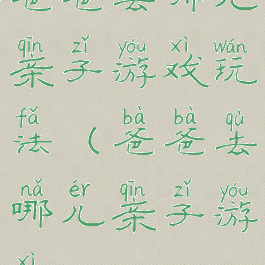 爸爸去哪儿
qīn zǐ yóu xì wán
亲子游戏玩
fǎ bà bà qù
法（爸爸去
nǎ ér qīn zǐ yóu
哪儿亲子游
xì